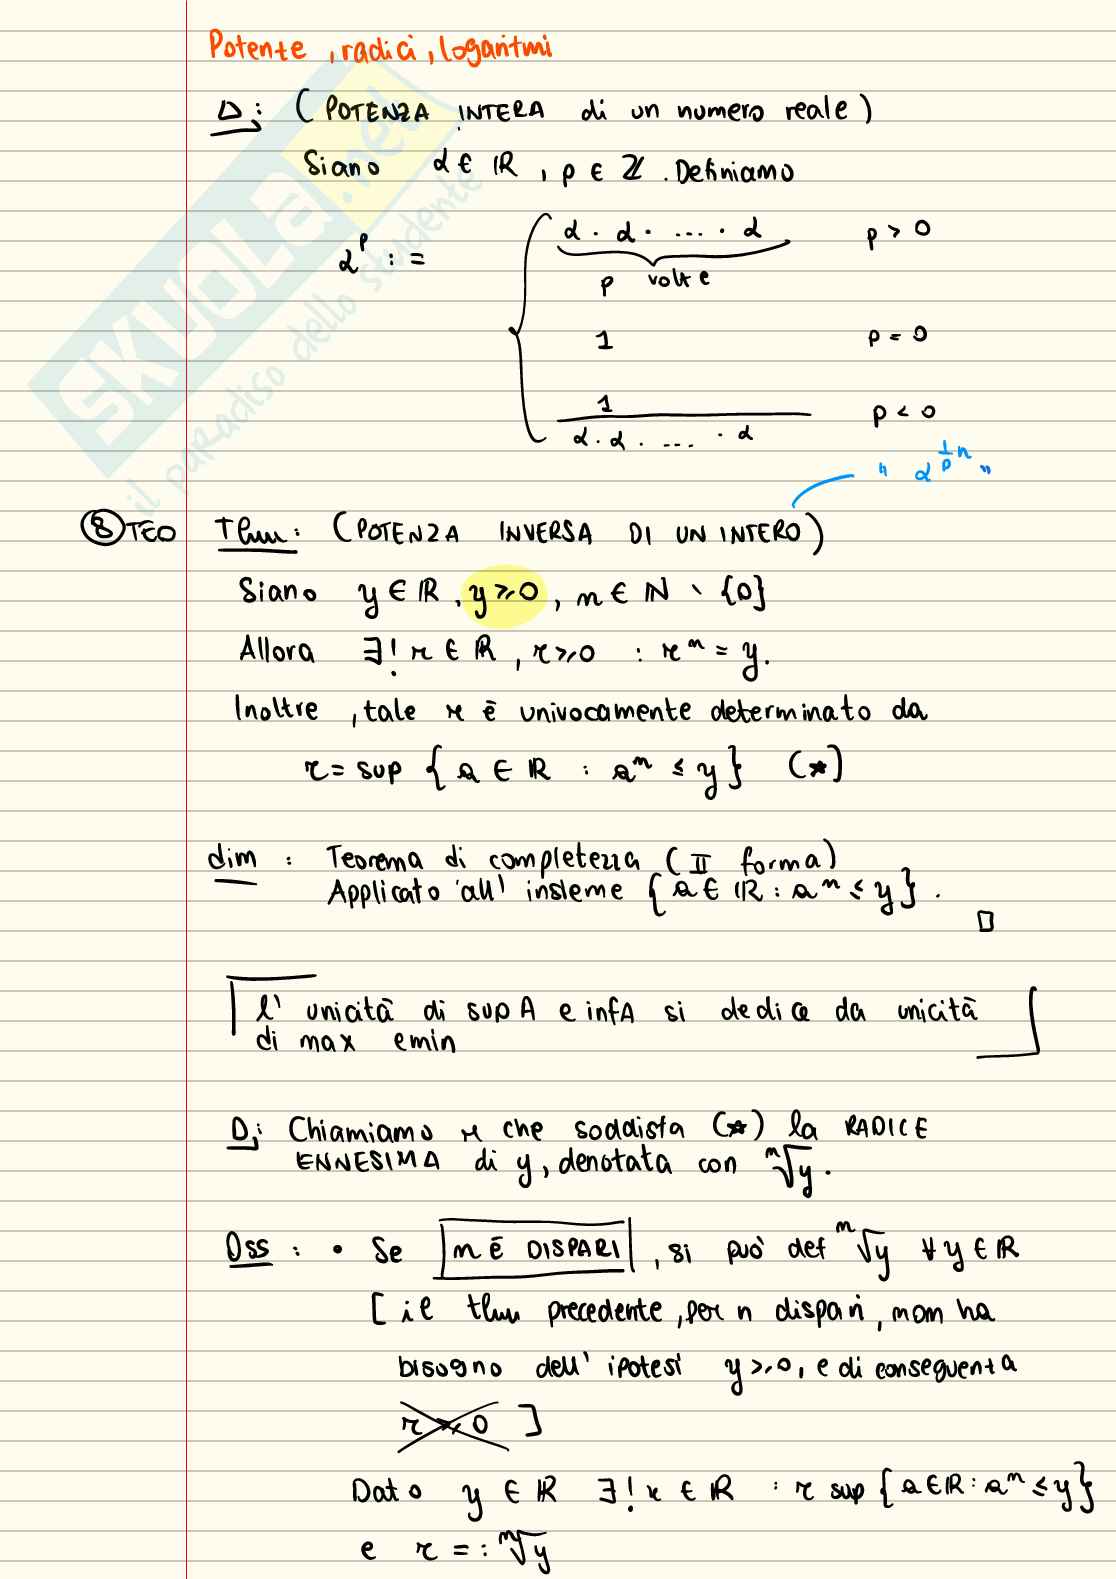 Potenze, radici, logaritmi
D: (POTENZA INTERA di un numero reale)
Siano α ∈ ℝ, p ∈ ℤ. Definiamo
α^p := { α · α · ... · α p > 0
p volte
1 p = 0
1 / α · α · ... · α p < 0
" α^{1/p} n "
⑧ TEO Thm: (POTENZA INVERSA DI UN INTERO)
Siano y ∈ ℝ, y ≥ 0, n ∈ ℕ \ {0}
Allora ∃! r ∈ ℝ, r ≥ 0 : r^n = y.
Inoltre, tale r è univocamente determinato da
r = sup {a ∈ ℝ : a^n ≤ y} (*)
dim : Teorema di completezza (II forma)
Applicato all' insieme {a ∈ ℝ : a^n ≤ y}. □
l' unicità di sup A e inf A si dedice da unicità
di max e min
D: Chiamiamo r che soddisfa (*) la RADICE
ENNESIMA di y, denotata con ⁿ√y.
Oss : • Se n è DISPARI, si può def ⁿ√y ∀ y ∈ ℝ
[il thm precedente, per n dispari, non ha
bisogno dell' ipotesi y ≥ 0, e di conseguenza
r ≥ 0 ]
Dato y ∈ ℝ ∃! r ∈ ℝ : r sup {a ∈ ℝ : a^n ≤ y}
e r =: ⁿ√y
SKUOLA.net
il paradiso dello studente